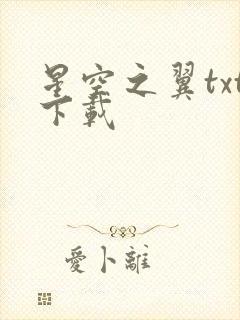 星空之翼txt
下載
愛卜離